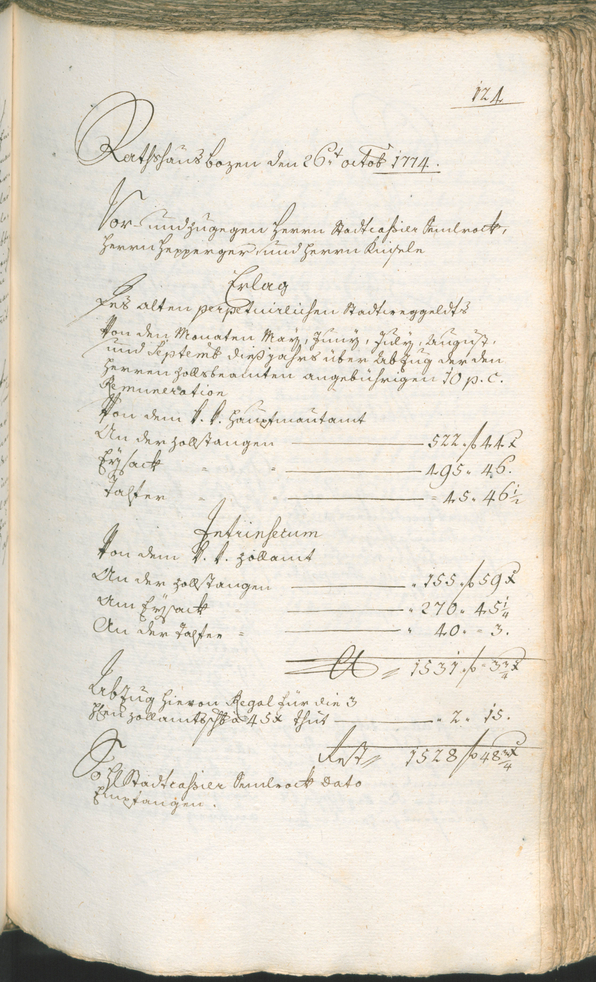 124
Rathshaus Bozen den 26t octob 1774.
Vor- und zugegen Herrn Stadtcassier Semlrock,
Herrn Hepperger, und Herrn Kinsele
Erlag
des alten perpetuirlichen Stadtweggelds
Von den Monaten May, Juny, July, August,
und Septemb dießjahrs über Abzug der den
Herren Zollsbeamten angebührigen 10 p. C.
Remuneration
Von dem K. K. Hauptmautamt
An der Zollstangen 522 f 44 x
Eysack 195 " 46.
Talfer " 45 " 46 1/2
Intrinsecum
Von dem K. K. Zollamt
An der Zollstangen " 155 f 59 x
Am Eysack " 270 " 45 1/4
An der Talfer " " 40 " " 3.
1531 f " 3 3/4 x
Abzug hievon Regal für die 3
Zollamts à 45 x thut " 2 " 15.
Rest 1528 f 48 3/4 x
Stadtcassier Semlrock dato
Empfangen.